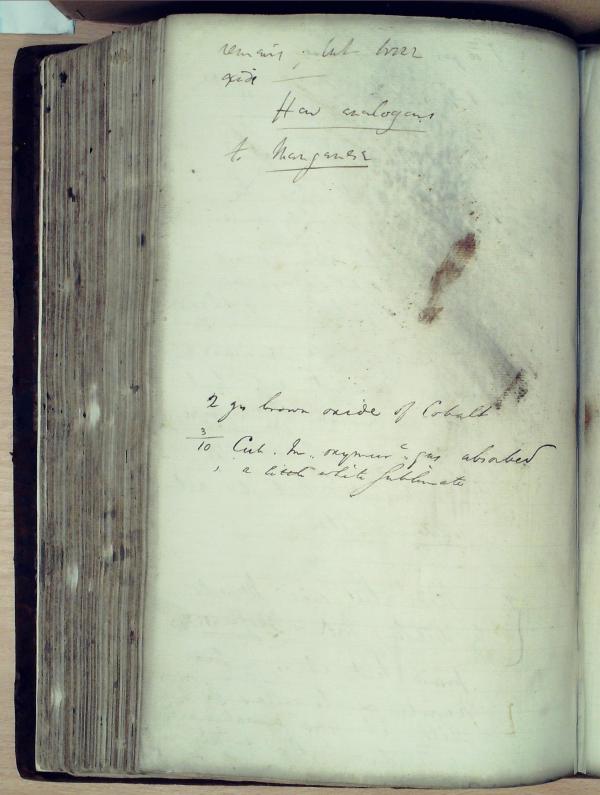 remains but
oxide
How analogous
to Manganese
2 grs brown oxide of Cobalt
3/10 Cub. In. oxymurc gas absorbed
, a little white sublimate